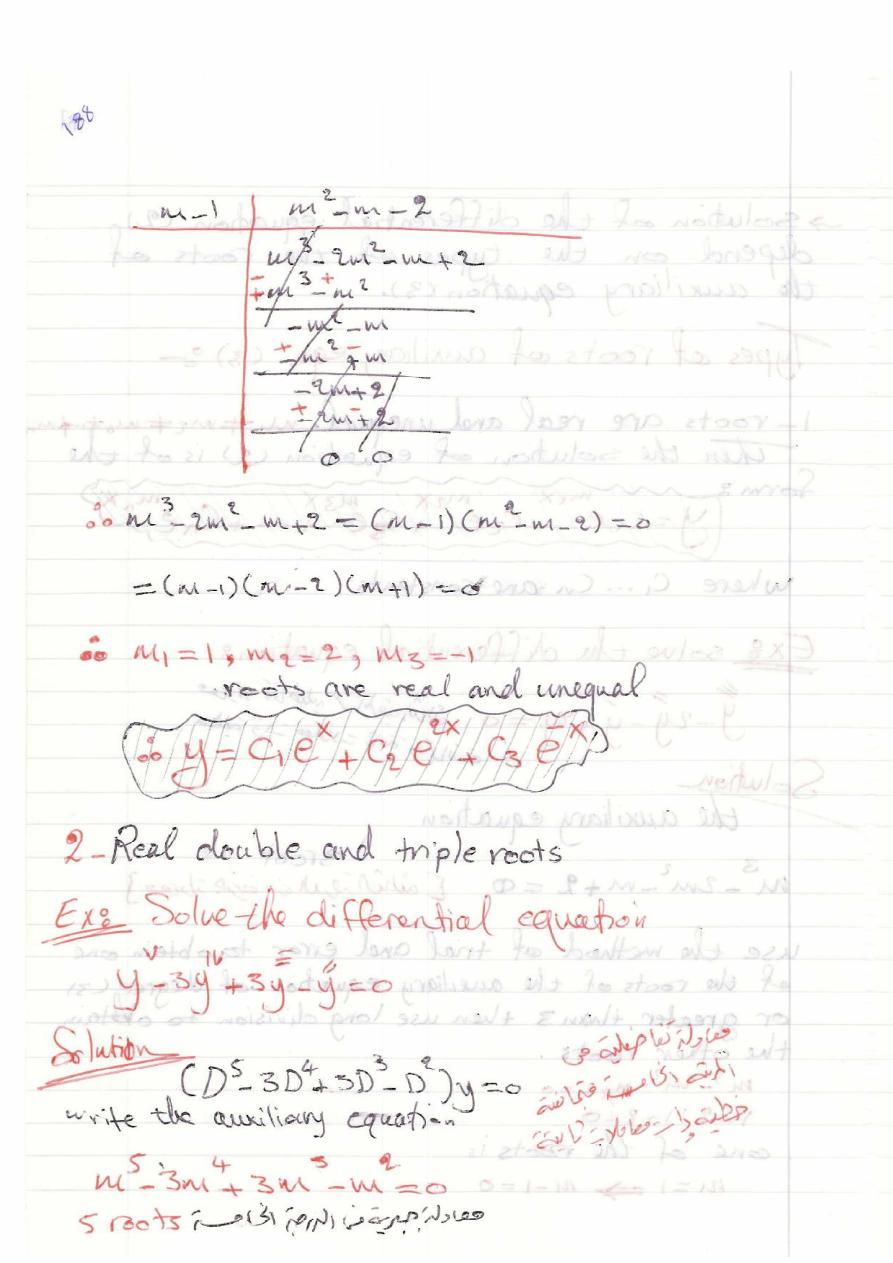 188
m-1 | m² - m - 2
m³ - 2m² - m + 2
m³ - m²
-m² - m
-m² + m
-2m + 2
-2m + 2
0 0
∴ m³ - 2m² - m + 2 = (m-1)(m² - m - 2) = 0
= (m-1)(m-2)(m+1) = 0
∴ m₁ = 1, m₂ = 2, m₃ = -1
roots are real and unequal
∴ y = C₁eˣ + C₂e²ˣ + C₃e⁻ˣ
2- Real double and triple roots
Ex: Solve the differential equation
yⱽ - 3yᴵⱽ + 3y''' - y'' = 0
Solution
(D⁵ - 3D⁴ + 3D³ - D²)y = 0
معادلة تفاضلية من
الرتبة الخامسة متجانسة
خطية ذات معاملات ثابتة
write the auxiliary equation
m⁵ - 3m⁴ + 3m³ - m² = 0
5 roots معادلة جبرية من الدرجة الخامسة